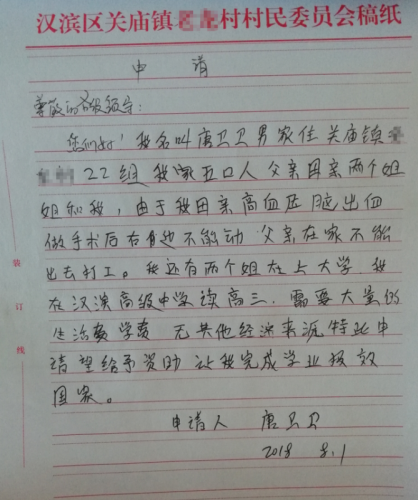 汉滨区关庙镇村村民委员会稿纸
申 请
尊敬的各级领导：
您们好！我名叫唐卫卫男家住关庙镇
22组 我家五口人 父亲母亲两个姐
姐和我，由于我母亲高血压脑出血
做手术后右身也不能动 父亲在家不能
出去打工。我还有两个姐在上大学，我
在汉滨高级中学读高三，需要大量的
生活费学费 无其他经济来源 特此申
请望给予资助 让我完成学业报效
国家。
申请人 唐卫卫
2018 8.1
装
订
线